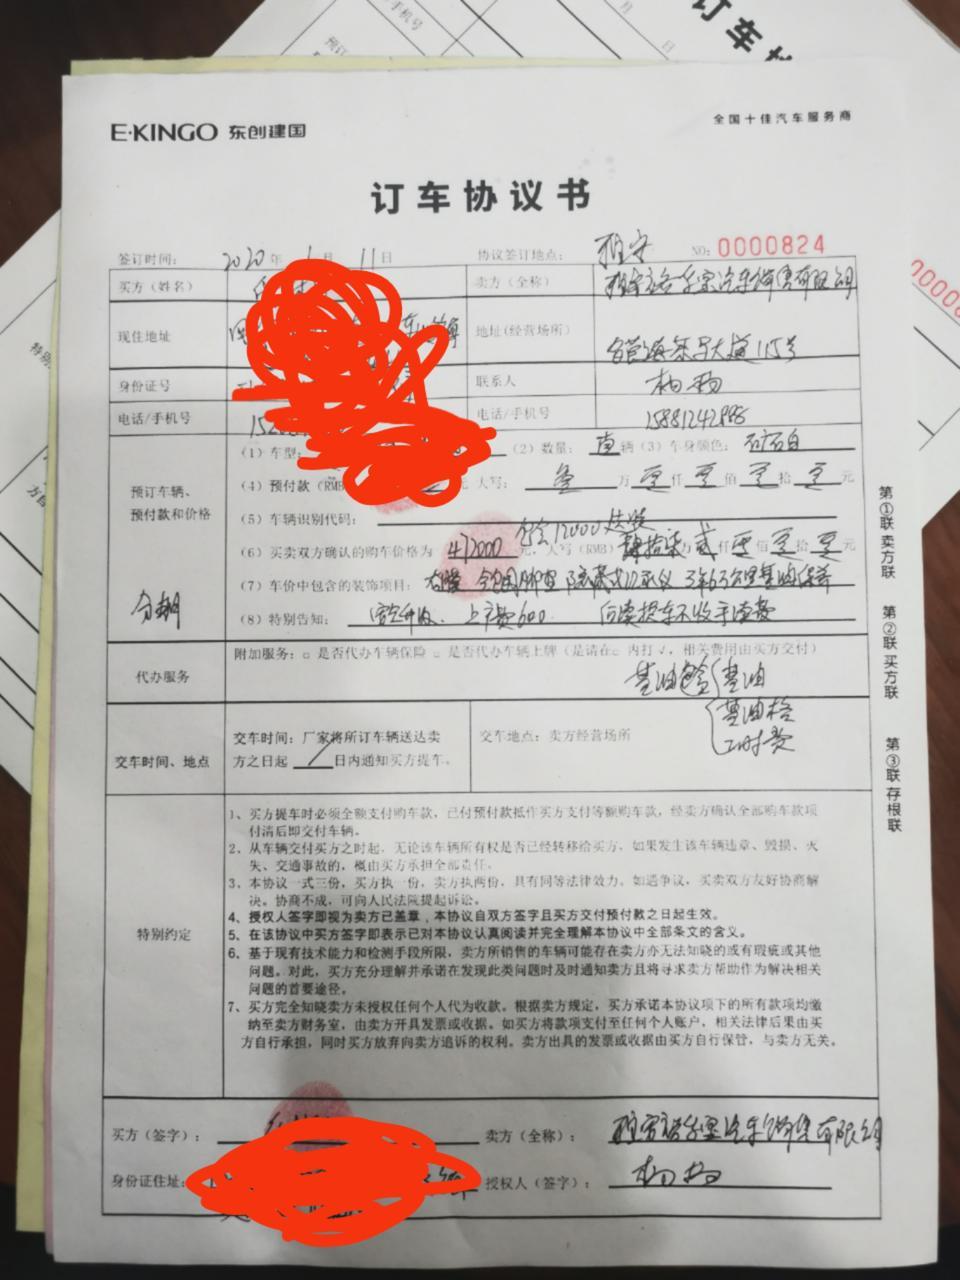 订车协
手机号
月 日
E·KINGO 东创建国
全国十佳汽车服务商
订车协议书
签订时间: 2020年 1月 11日 协议签订地点: 雅安 NO: 0000824
买方(姓名) 卖方(全称)
汽车销售有限公司
现住地址 地址(经营场所)
大道115号
身份证号 联系人 杨
电话/手机号 电话/手机号 15881242888
(1)车型: (2)数量: 壹辆 (3)车身颜色: 矿石白
预订车辆、预付款和价格
(4)预付款(RMB 元 大写: 叁万零仟零佰零拾零元
(5)车辆识别代码:
包含12000
(6)买卖双方确认的购车价格为 472000元,大写(RMB)肆拾柒万贰仟零佰零拾零元
(7)车价中包含的装饰项目: 全包围脚垫 记录仪 3年6万公里基油保养
分期
(8)特别告知: 上户费600 后续提车不收手续费
代办服务
附加服务:□ 是否代办车辆保险 □ 是否代办车辆上牌(是请在□ 内打√,相关费用由买方交付)
基油包含 基油
基油格
工时费
交车时间、地点
交车时间:厂家将所订车辆送达卖
方之日起 / 日内通知买方提车。
交车地点:卖方经营场所
特别约定
1、买方提车时必须全额支付购车款,已付预付款抵作买方支付等额购车款,经卖方确认全部购车款项
付清后即交付车辆。
2、从车辆交付买方之时起,无论该车辆所有权是否已经转移给买方,如果发生该车辆违章、毁损、灭
失、交通事故的,概由买方承担全部责任。
3、本协议一式三份,买方执一份,卖方执两份,具有同等法律效力。如遇争议,买卖双方友好协商解
决。协商不成,可向人民法院提起诉讼。
4、授权人签字即视为卖方已盖章,本协议自双方签字且买方交付预付款之日起生效。
5、在该协议中买方签字即表示已对本协议认真阅读并完全理解本协议中全部条文的含义。
6、基于现有技术能力和检测手段所限,卖方所销售的车辆可能存在卖方亦无法知晓的或有瑕疵或其他
问题。对此,买方充分理解并承诺在发现此类问题时及时通知卖方且将寻求卖方帮助作为解决相关
问题的首要途径。
7、买方完全知晓卖方未授权任何个人代为收款。根据卖方规定,买方承诺本协议项下的所有款项均缴
纳至卖方财务室,由卖方开具发票或收据。如买方将款项支付至任何个人账户,相关法律后果由买
方自行承担,同时买方放弃向卖方追诉的权利。卖方出具的发票或收据由买方自行保管,与卖方无关。
买方(签字): 卖方(全称): 汽车销售有限公司
身份证住址: 授权人(签字): 杨
第①联 卖方联
第②联 买方联
第③联 存根联